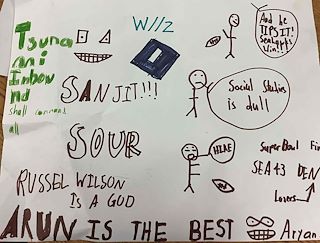 Tsuna
mi Inbou
nd
shall command
all
W//Z
And he
TIPS IT!
Seahawks
Win!!
SANJIT!!!
Social Studies
is dull
SOUR
HIKE
Super Bowl Fin
SEA 43 DEN
Losers
RUSSEL WILSON
IS A GOD
ARUN IS THE BEST
Aryan